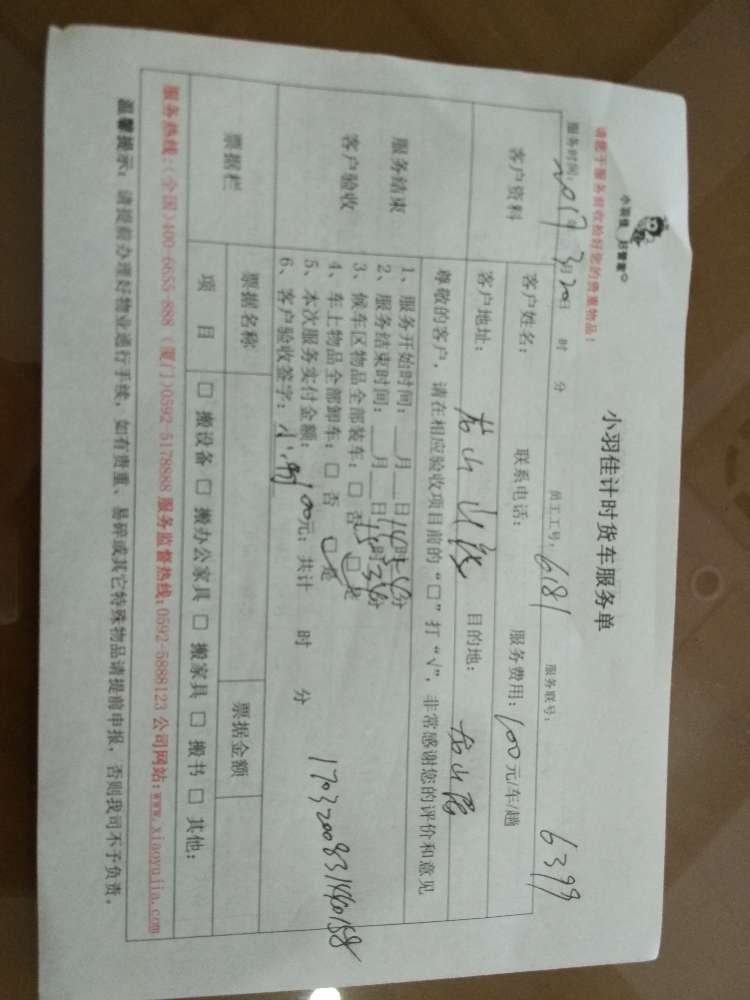 小羽佳 好管家
小羽佳计时货车服务单
请您于服务前收拾好您的贵重物品!
员工工号: 6181 服务联号: 6399
服务时间: 2017年3月20日 时 分
客户资料
客户姓名: 联系电话: 服务费用: 100元/车/趟
客户地址: 目的地:
尊敬的客户,请在相应验收项目前的“□”打“√”,非常感谢您的评价和意见
服务结束
客户验收
1、服务开始时间:__月__日14时 分
2、服务结束时间:__月__日15时3 分
3、候车区物品全部装车:□ 否 □ 是
4、车上物品全部卸车:□ 否 □ 是
5、本次服务实付金额: 100元;共计 时 分
6、客户验收签字:
票据栏
票据名称 票据金额
项 目 □ 搬设备 □ 搬办公家具 □ 搬家具 □ 搬书 □ 其他:
服务热线:(全国)400-6655-888 (厦门)0592-5178888 服务监督热线:0592-5888123 公司网站:www.xiaoyujia.com
温馨提示:请提前办理好物业通行手续,如有贵重、易碎或其它特殊物品请提前申报,否则我司不予负责。